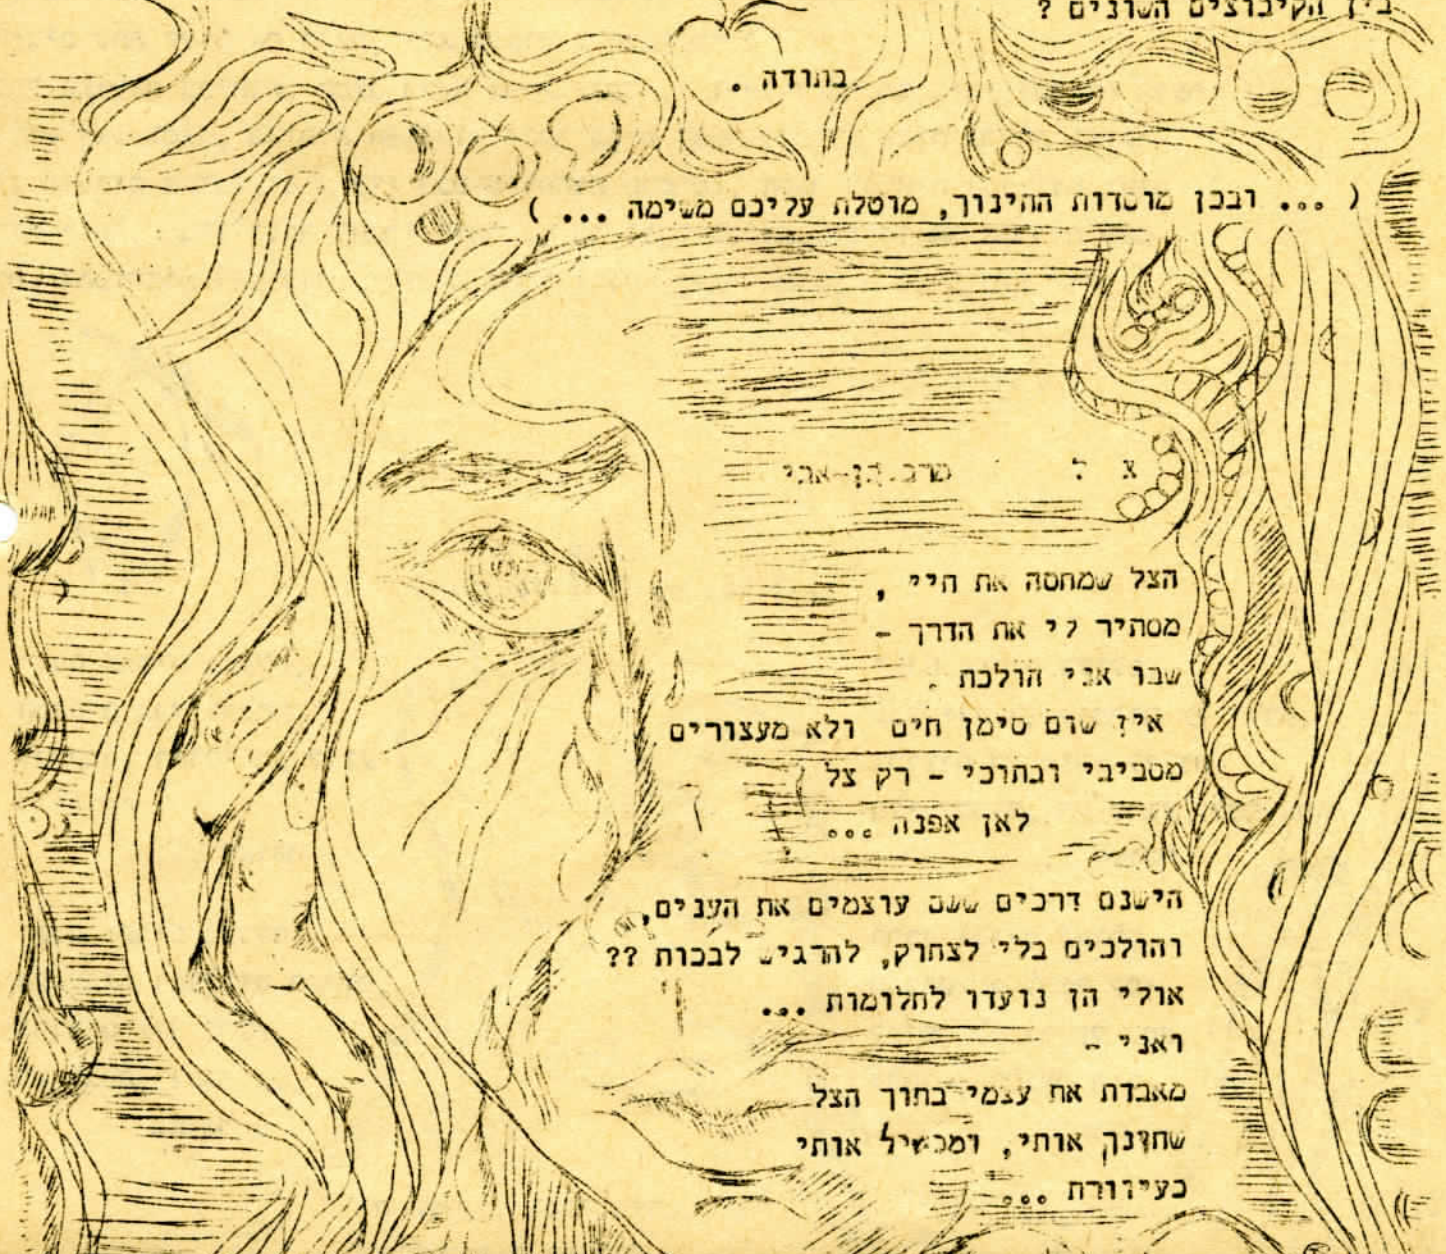 בין הקיבוצים השונים ?
בתודה .
( ... ובכן מוסדות החינוך, מוטלת עליכם משימה ... )
צ ל
הצל שמחסה את חיי ,
מסתיר לי את הדרך -
שבו אני הולכת .
אין שום סימן חים ולא מעצורים
מסביבי ובתוכי - רק צל
לאן אפנה ...
הישנם דרכים ששם עוצמים את הענים,
והולכים בלי לצחוק, להרגיש לבכות ??
אולי הן נועדו לחלומות ...
ואני -
מאבדת את עצמי בתוך הצל
שחונק אותי, ומכשיל אותי
כעיוורת ...